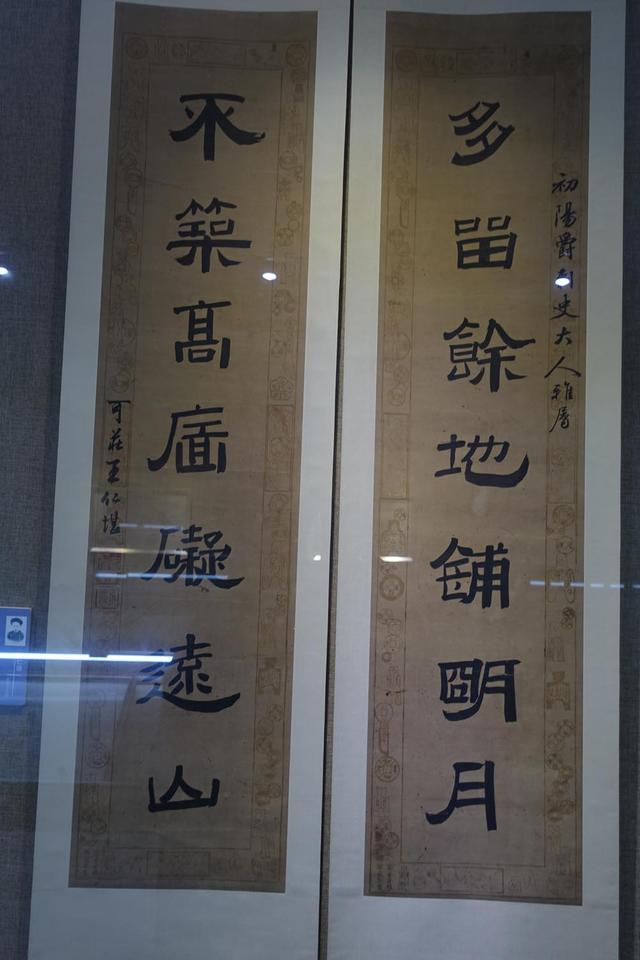 初陽爵刺史大人雅屬
多留餘地鋪朙月
不築髙廧礙遠山
可莊王仁堪